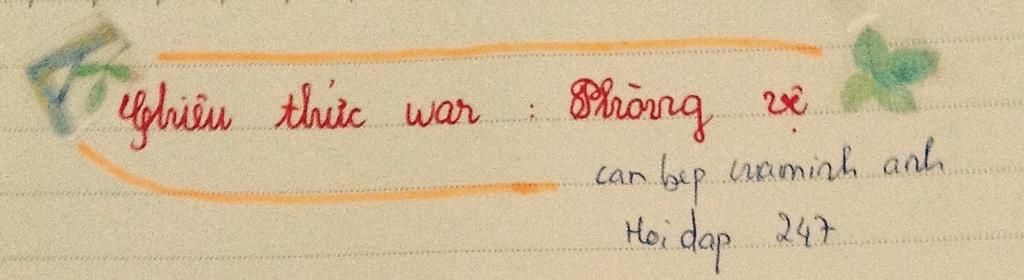 Nghiêu thức war : Phòng vệ
can bep cuaminh anh
Hoi dap 247